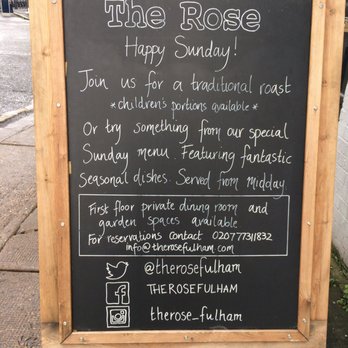 The Rose
Happy Sunday!
Join us for a traditional roast
*children's portions available*
Or try something from our special
Sunday menu. Featuring fantastic
Seasonal dishes. Served from midday
First floor private dining room and
garden spaces available
For reservations contact 02077311832
info@therosefulham.com
@therosefulham
THEROSEFULHAM
therose_fulham